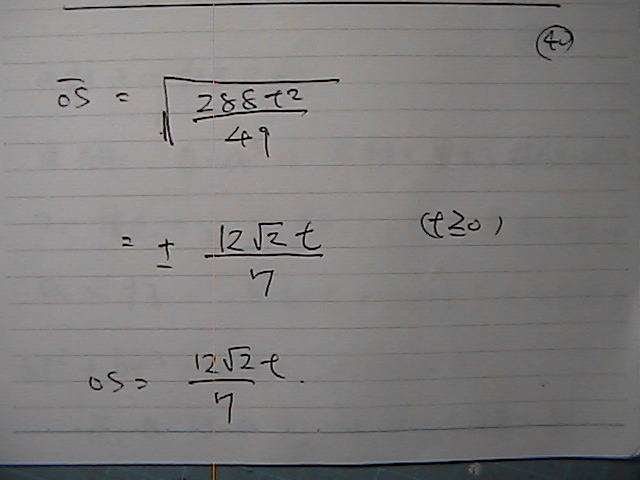 (40)
OS̅ = √(288t²/49)
= ± 12√2 t/7 (t≥0)
OS = 12√2 t/7.